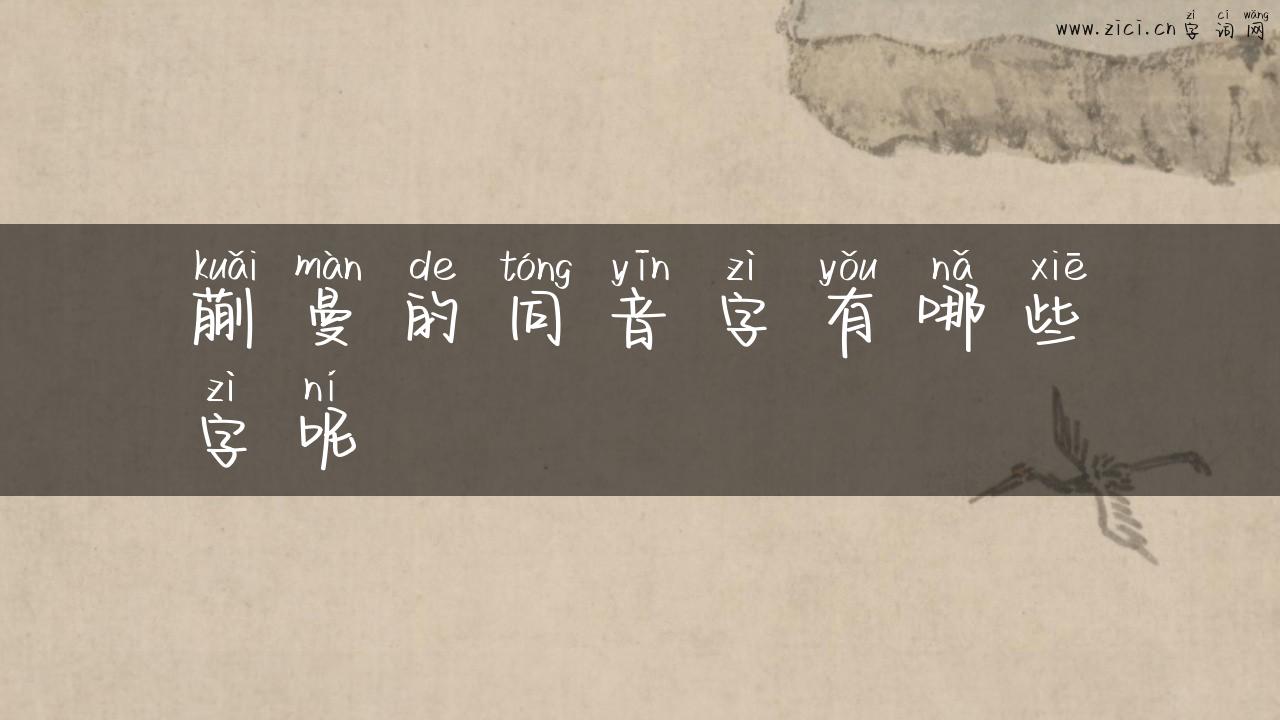 zì cí wǎng
www.zici.cn字词网
kuǎi màn de tóng yīn zì yǒu nǎ xiē
蒯曼的同音字有哪些
zì ní
字呢